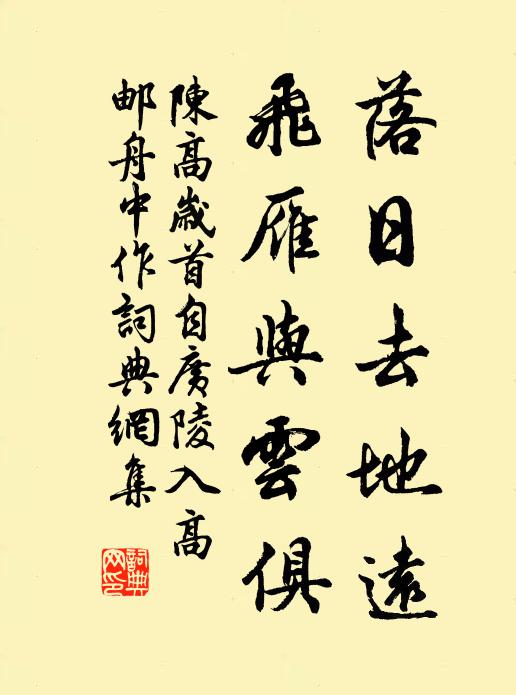 落日去地遠
飛雁與雲俱
陳高歲首自廣陵入高
郵舟中作詞典網集
詞典
网印